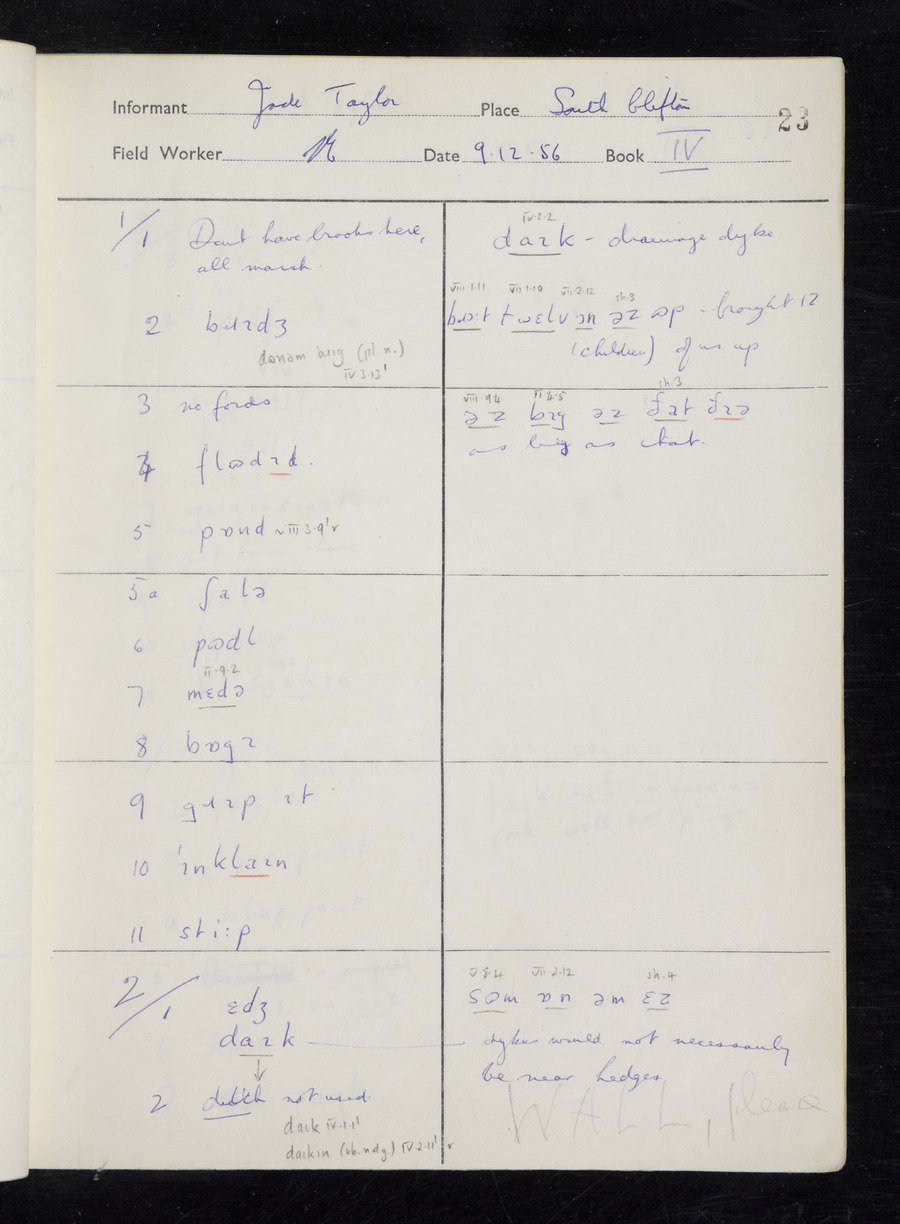 Informant Jode Taylor Place South Clifton
23
Field Worker Date 9.12.56 Book IV
1/1 Don't have brooks here,
all marsh.
IV.2.2
daɪk - drainage dyke
2 bɹɪdʒ
dɒnəm bɹɪg (pl. n.)
IV.3.13'
VIII.1.11 VII.1.10 VII.2.12 sh.3
twɛlv ɒn əz ɷp - brought 12
(children) of us up
3 no fords
4 flɷdɪd.
5 pɒnd ~ III.3.9' v
VIII.9.4 II.4.5 sh.3
əz bɪg əz ðat ðɪə
as big as that.
5a ʃalə
6 pɷdl
II.9.2
7 mɛdə
8 bɒgɪ
9 gɹɪp ɪt
10 'ɪnklaɪn
11 sti:p
2/1 ɛdʒ
daɪk
2 ditch not used.
daɪk IV.1.1'
daɪkɪn (vb. n dg.) IV.2.11' v
V.8.4 VII.2.12 sh.4
sɷm ɒn əm ɛz
dykes would not necessarily
be near hedges
WALL, please